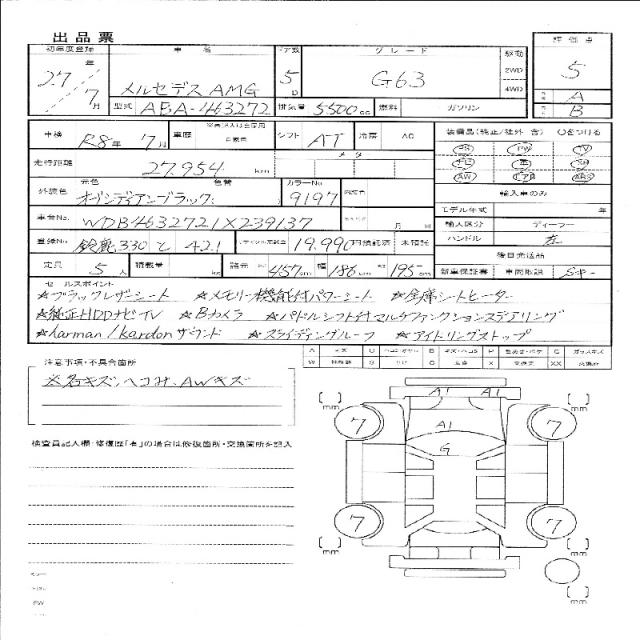 出品票
初年度登録 車名 ドア数 グレード 駆動 評価点
27年 7月 メルセデス AMG 5D G63 2WD 4WD 5
型式 ABA-463272 排気量 5500cc 燃料 ガソリン A B
車検 R8年 7月 車歴 シフト AT 冷房 AC 装備品(純正/社外 含) Oをつける
走行距離 27.954 km メタ SR PW TV
PS AW ABS
外装色 元色 オブシディアンブラック 色替 カラーNo 9197 輸入車のみ
モデル年式 年
車台No. WDB4632721X239137 月 輸入区分 ディーラー
登録No. 鈴鹿330 て 421 リサイクル預託金 19.990円 預託済 未預託 ハンドル 左
後日発送品
定員 5人 積載量 kg 諸元 457cm 幅 186cm 高 195cm 新車保証書 車両取説 Sキー
セールスポイント
☆ブラックレザーシート ☆メモリー機能付パワーシート ☆全席シートヒーター
☆純正HDDナビTV ☆Bカメラ ☆パドルシフト付マルチファンクションステアリング
☆harman/kardonサウンド ☆スライディングルーフ ☆アイドリングストップ
注意事項・不具合箇所
※各キズ、ヘコみ、AWキズ
検査員記入欄:修復歴「有」の場合は修復箇所・交換箇所を記入
A1 A1
mm mm
A1
7 G 7
7 7
mm mm
mm